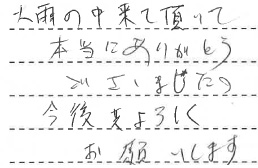 大雨の中来て頂いて
本当にありがとう
ございました。
今後共よろしく
お願いします